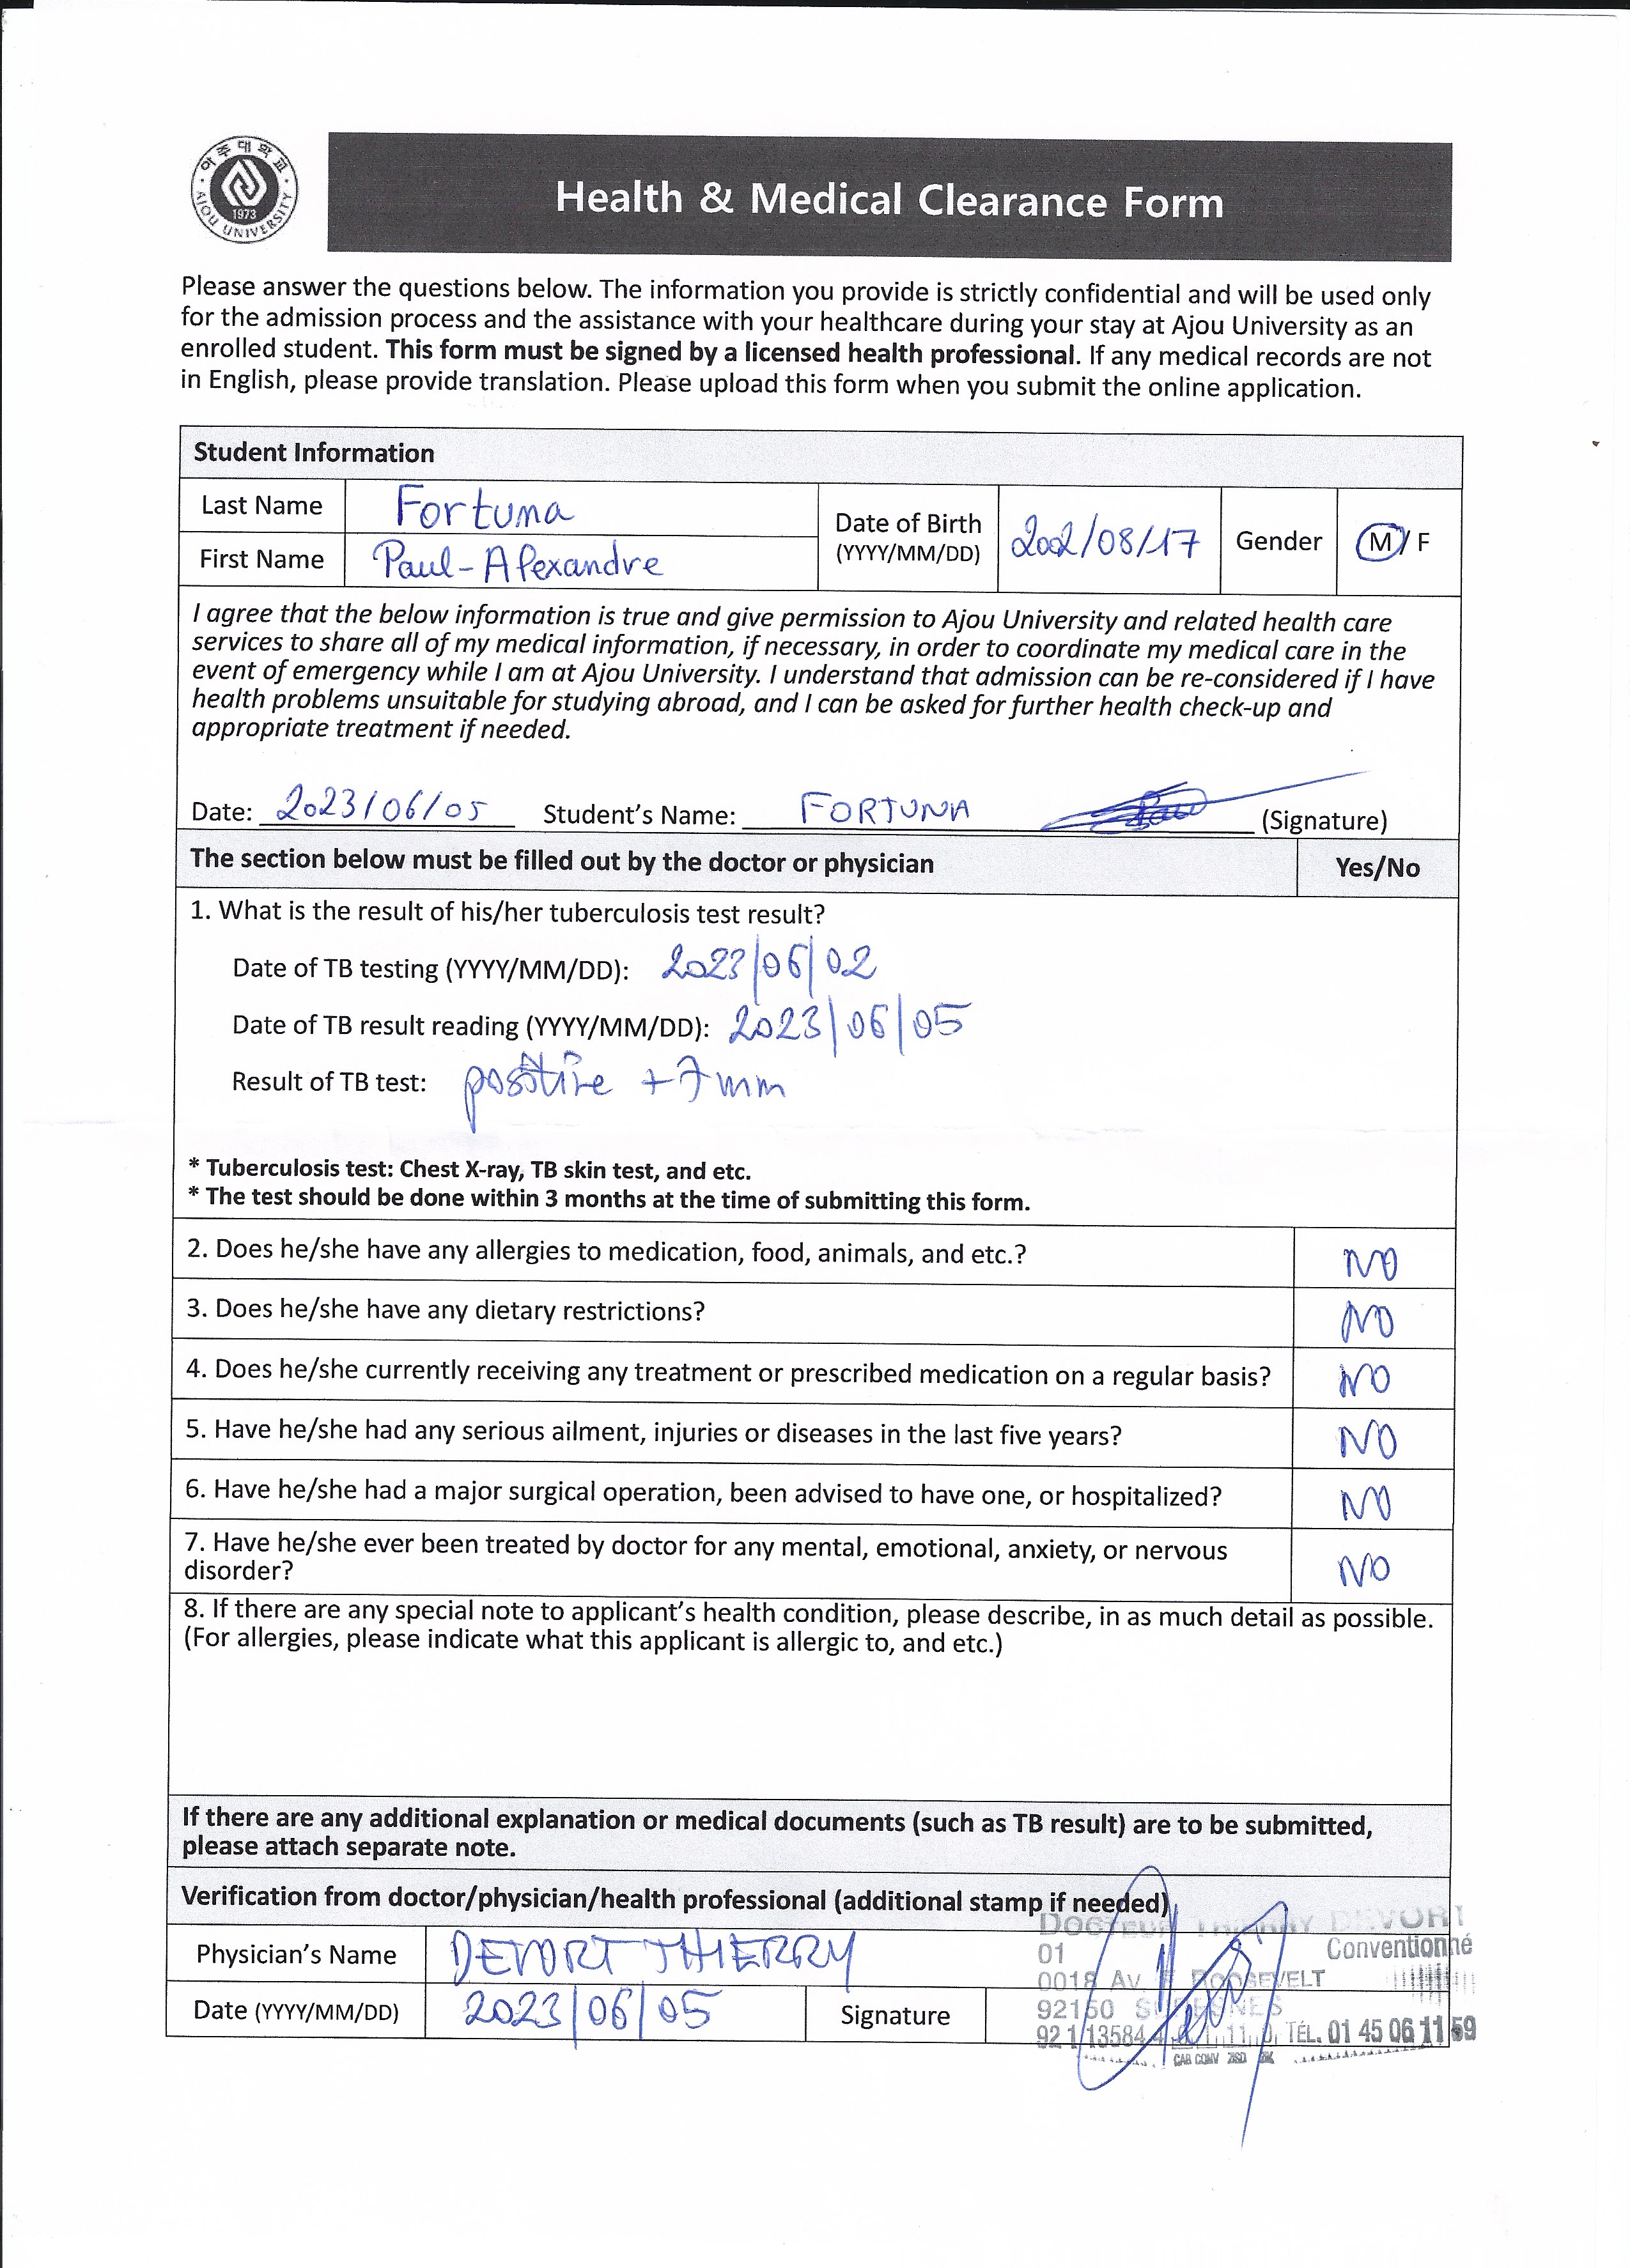 아주대학교
AJOU UNIVERSITY
1973
Health & Medical Clearance Form
Please answer the questions below. The information you provide is strictly confidential and will be used only
for the admission process and the assistance with your healthcare during your stay at Ajou University as an
enrolled student. This form must be signed by a licensed health professional. If any medical records are not
in English, please provide translation. Please upload this form when you submit the online application.
Student Information
Last Name Fortuna
First Name Paul-Alexandre
Date of Birth
(YYYY/MM/DD)
2002/08/17
Gender M/F
I agree that the below information is true and give permission to Ajou University and related health care
services to share all of my medical information, if necessary, in order to coordinate my medical care in the
event of emergency while I am at Ajou University. I understand that admission can be re-considered if I have
health problems unsuitable for studying abroad, and I can be asked for further health check-up and
appropriate treatment if needed.
Date: 2023/06/05 Student's Name: FORTUNA (Signature)
The section below must be filled out by the doctor or physician Yes/No
1. What is the result of his/her tuberculosis test result?
Date of TB testing (YYYY/MM/DD): 2023/06/02
Date of TB result reading (YYYY/MM/DD): 2023/06/05
Result of TB test: positive +7mm
* Tuberculosis test: Chest X-ray, TB skin test, and etc.
* The test should be done within 3 months at the time of submitting this form.
2. Does he/she have any allergies to medication, food, animals, and etc.? NO
3. Does he/she have any dietary restrictions? NO
4. Does he/she currently receiving any treatment or prescribed medication on a regular basis? NO
5. Have he/she had any serious ailment, injuries or diseases in the last five years? NO
6. Have he/she had a major surgical operation, been advised to have one, or hospitalized? NO
7. Have he/she ever been treated by doctor for any mental, emotional, anxiety, or nervous
disorder? NO
8. If there are any special note to applicant's health condition, please describe, in as much detail as possible.
(For allergies, please indicate what this applicant is allergic to, and etc.)
If there are any additional explanation or medical documents (such as TB result) are to be submitted,
please attach separate note.
Verification from doctor/physician/health professional (additional stamp if needed)
Physician's Name DEVORT THIERRY
Date (YYYY/MM/DD) 2023/06/05 Signature
DOCTEUR THIERRY DEVORT
01 Conventionné
0018 Av F ROOSEVELT
92150 SURESNES
TÉL. 01 45 06 11 59